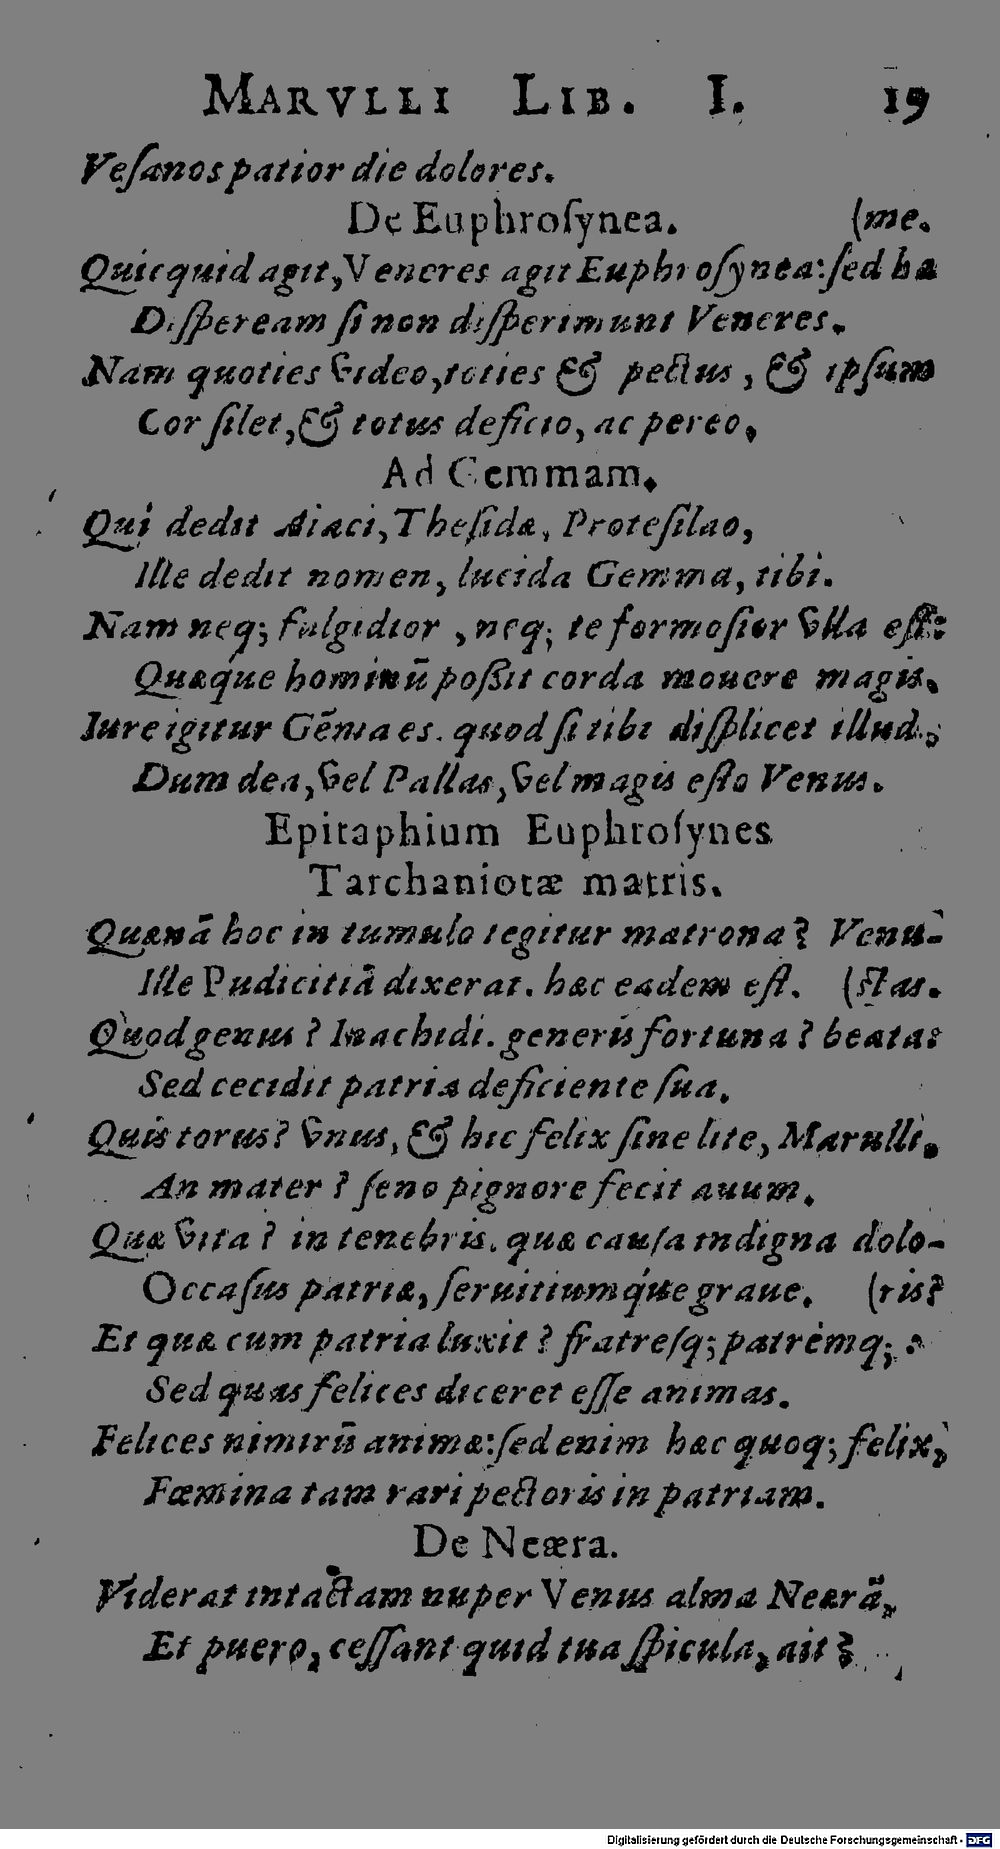 MARVLLI LIB. I. 19
Veſanos patior die dolores.
De Euphroſynea. (me.
Quicquid agit, Veneres agit Euphroſynea: ſed ha
Diſpeream ſi non diſperimunt Veneres.
Nam quoties video, toties & pectus, & ipſum
Cor ſilet, & totus deficio, ac pereo.
Ad Gemmam.
Qui dedit Aiaci, Theſidæ, Proteſilao,
Ille dedit nomen, lucida Gemma, tibi.
Nam neq; fulgidior, neq; te formoſior vlla eſt:
Quæque hominū poßit corda mouere magis.
Iure igitur Gēma es. quod ſi tibi diſplicet illud,
Dum dea, vel Pallas, vel magis eſto Venus.
Epitaphium Euphroſynes
Tarchaniotæ matris.
Quænā hoc in tumulo tegitur matrona? Venu-
Ille Pudicitiā dixerat. hæc eadem eſt. (ſtas.
Quod genus? Inachidi. generis fortuna? beata:
Sed cecidit patria deficiente ſua.
Quis torus? vnus, & hic felix ſine lite, Marulli.
An mater? ſeno pignore fecit auum.
Quæ vita? in tenebris. quæ cauſa indigna dolo-
Occaſus patriæ, ſeruitiumq́ue graue. (ris?
Et quæ cum patria luxit? fratreſq; patrémq; :
Sed quas felices diceret eſſe animas.
Felices nimirū animæ: ſed enim hæc quoq; felix,
Fœmina tam rari pectoris in patriam.
De Neæra.
Viderat intactam nuper Venus alma Neærā,
Et puero, ceſſant quid tua ſpicula, ait?
Digitalisierung gefördert durch die Deutsche Forschungsgemeinschaft - DFG